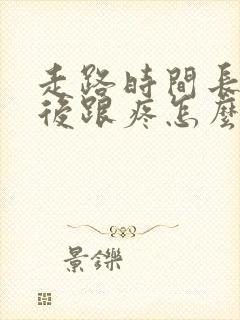 走路時間長
後跟疼怎麼
景鑠